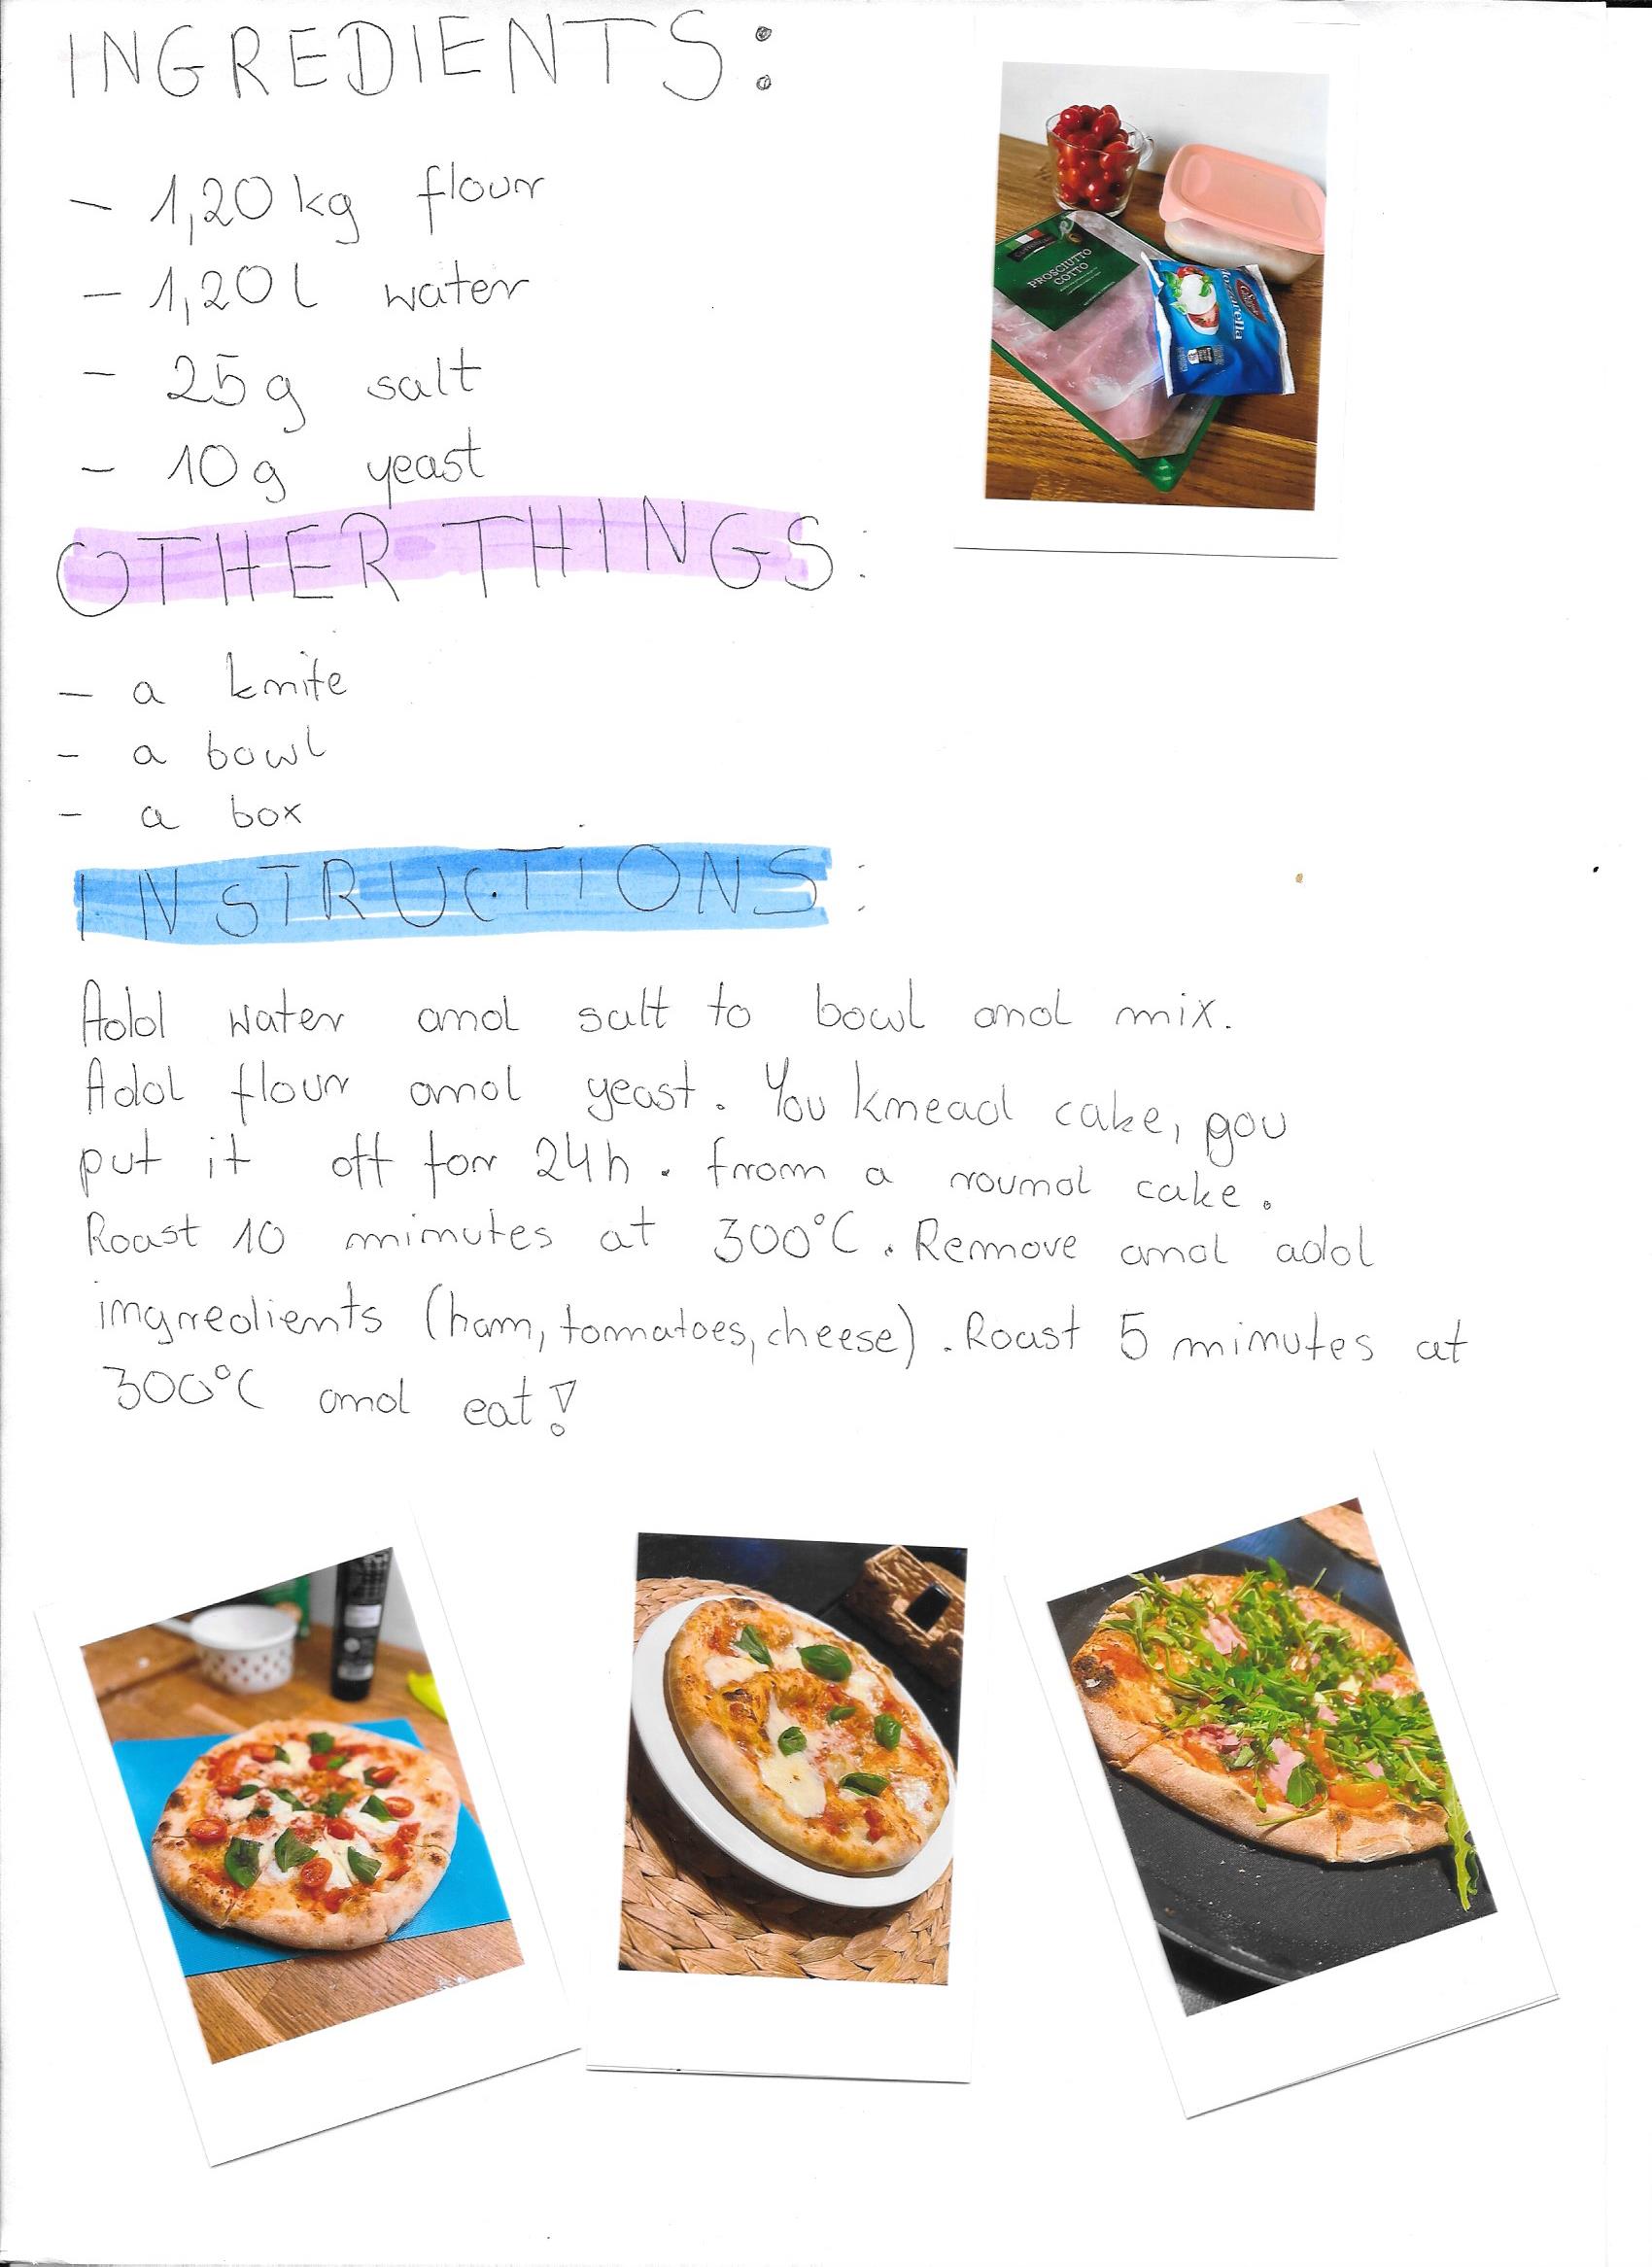 INGREDIENTS:
- 1,20 kg flour
- 1,20 l water
- 25 g salt
- 10 g yeast
OTHER THINGS:
- a knife
- a bowl
- a box
INSTRUCTIONS:
Add water and salt to bowl and mix.
Add flour and yeast. You knead cake, you
put it off for 24h. from a round cake.
Roast 10 minutes at 300°C. Remove and add
ingredients (ham, tomatoes, cheese). Roast 5 minutes at
300°C and eat!
PROSCIUTTO
COTTO
Mozzarella